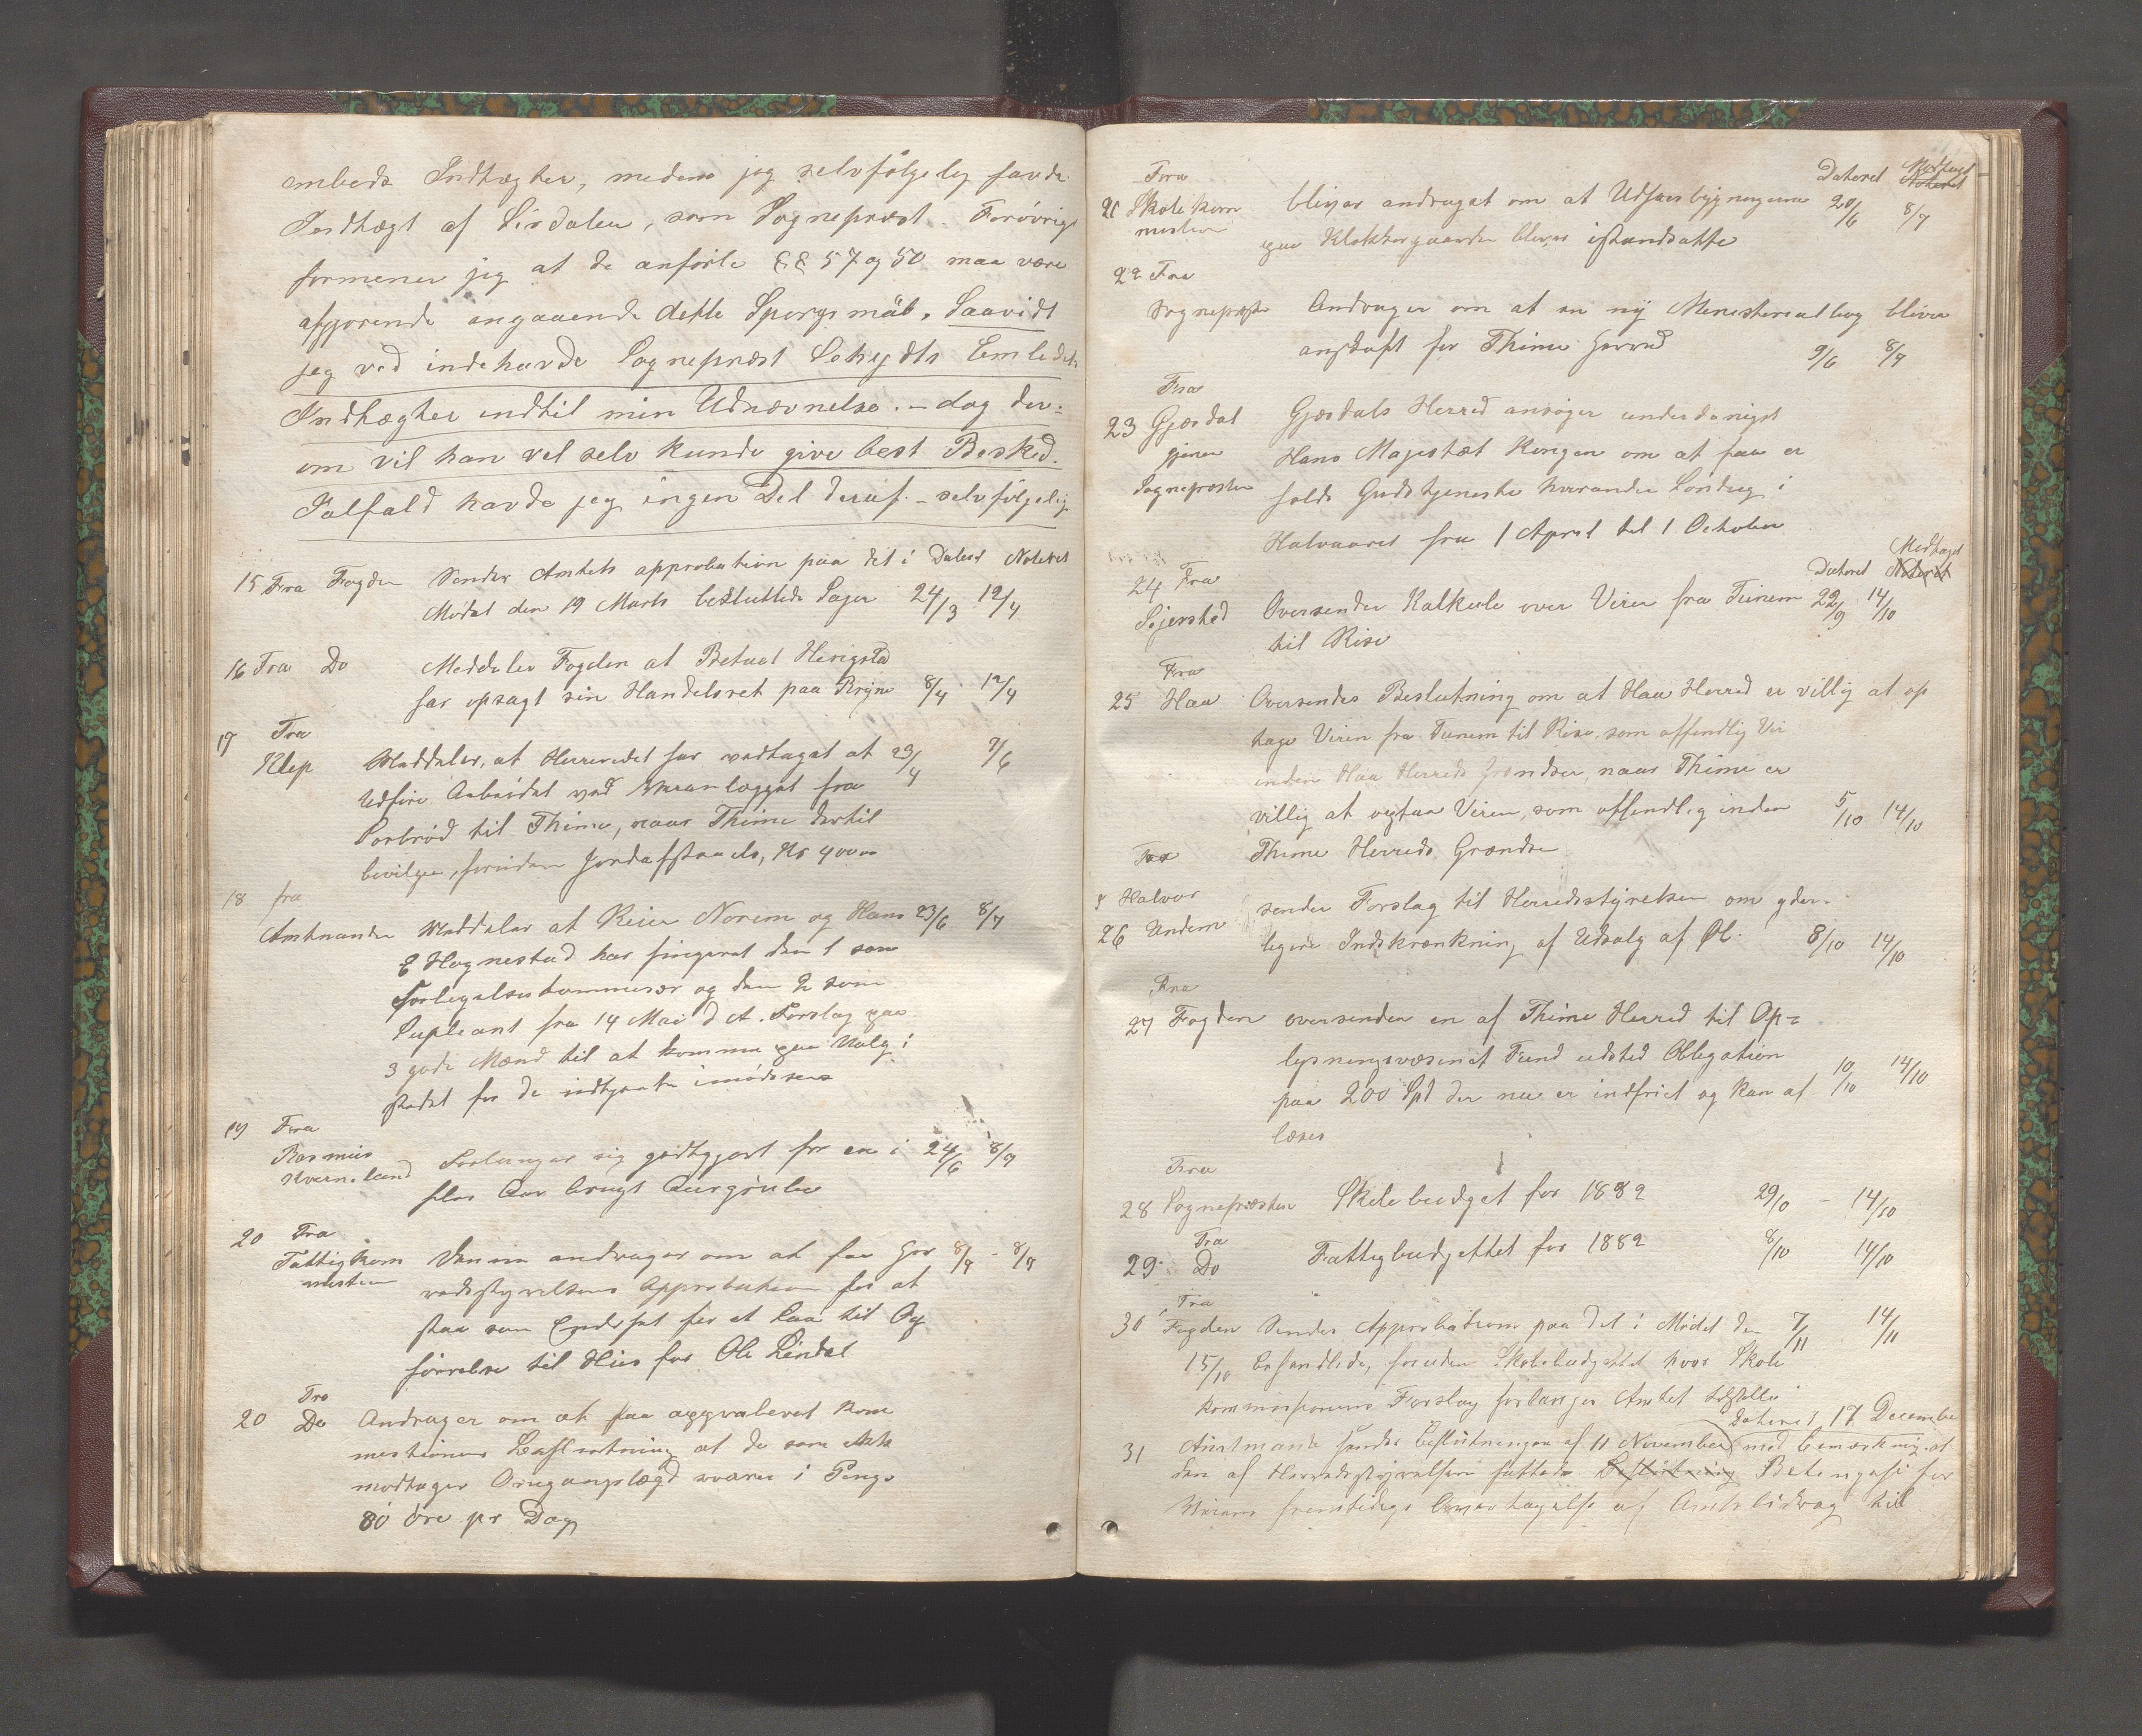 embeds Indtægter, medens jeg selvfølgelig havde
Indtægt af Sirdalen, som Sognepræst. Forøvrigt
formener jeg at de anførte §§ 57 og 50 maa være
afgjørende angaaende dette Spørgsmål. Saavidt
jeg ved indehavde Sognepræst Schydts Embeds
Indtægter indtil min Udnævnelse. – dog der:
om vil han vel selv kunde give best Besked.
Ialfald havde jeg ingen Del deraf – selvfølgelig
15 Fra Fogden Sender Amtets approbation paa det i Dateret Noteret
Mødet den 19 Marts besluttede Sager 24/3 12/4
16 Fra Do Meddeler Fogden at Betuel Herigstad
har opsagt sin Handelsret paa Bryne 8/4 12/4
17 Fra
Klep Meddeler, at Herredet har vedtaget at 23/4 7/6
Udføre Arbeidet ved
til Thime, naar Thime dertil
bevilger, foruden Jordafstaaels, Kr 400
18 fra
Amtmanden Meddeler at Reier Norem og Hans 23/6 8/7
E Hognestad har fungeret den 1 som
Forligelseskommisær og den 2 som
Supleant fra 14 Mai d A. Forslag paa
3 gode Mænd til at komme paa Valg i
stedet for de indtgaate imødesees
19 Fra
Rasmus Kverneland Forlanger sig godtgjort for en i 24/6 8/7
fler Aar brugt
20 Fra
Fattigkommistion Denne andrager om at faa Her 8/7 – 8/7
redsstyrelsens Approbation for at
staa som for et Laan til Op
førrelse til Hus for Ole Lindal
Fra
20 Do Andrager om at faa approberet Kom
mistionens Beslutning at de som ikke
modtager Omgangslægd svarer i Penge
80 öre pr Dag
Fra Dateret Modtaget Noteret
21 Skolekommistion bliver andraget om at Udhusbygningerne 20/6 8/7
paa Klokkergaarden bliver istandsatte
22 Fra
Sognepræste Andrager om at en ny Menisterialbog bliver
anskaft for Thime Herred 9/6 8/7
Fra
23 Gjesdal Gjesdals Herred ansøger underdanigst
gjenem Hans Majestæt Kongen om at faa er
Sognepræsten holde Gudstjeneste hverandre Søndag i
Halvaaret fra 1 April til 1 October
Modtaget
24 Fra Dateret Noteret
Sejersted Oversender Kalkule over Veien fra Tunem 22/9 14/10
til Rise
Fra
25 Haa Oversendes Beslutning om at Haa Herred er villig at op
tage Veien fra Tunem til Rise, som offendlig Vei
inden Haa Herreds Grændser, naar Thime er
villig at optaa Veien, som offendlig inden 5/10 14/10
Thime Herreds Grændse
Fra
Halvor sender Forslag til Herredsstyrelsen om yder-
26 Undem legere Indskrænkning af Udsalg af Øl. 8/10 14/10
Fra
27 Fogden oversender en af Thime Herred til Op=
lysningsvæsenet Fund udsted Oblegation
paa 200 Spd der nu er indfriet og kan af 10/10 14/10
læses
Fra
28 Sognepræsten Skolebudget for 1882 29/10 – 14/10
Fra
29 Do Fattigbudgettet for 1882 8/10 14/10
Fra
30 Fogden Sender Approbation paa det i Mødet den 7/11 14/11
15/10 behandlede, foruden Skolebudgettet hvor Skole
kommisionens Forslag forlanger Amtet
dateret 17 Decembe
31 Amtmand sender Beslutningen af 11 November med Bemærkning at
den af Herredsstyrelsen fattede Beslutning Betingelse for
Veiens fremtidige af Amtsbidrag til